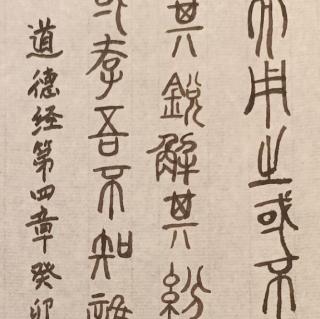 用之或不
其銳解其紛
存吾不知誰
道德经第四章癸卯